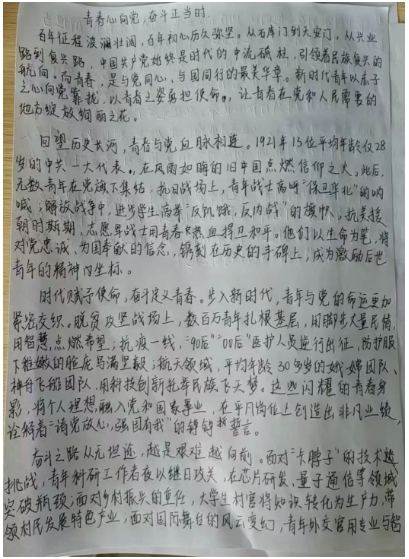 青春心向党,奋斗正当时
百年征程波澜壮阔,百年初心历久弥坚。从石库门到天安门,从兴业
路到复兴路,中国共产党始终是时代的中流砥柱,引领着民族复兴的
航向。而青春,是与党同心、与国同行的最美华章。新时代青年以赤子
之心向党靠拢,以青春之姿勇担使命,让青春在党和人民需要的
地方绽放绚丽之花。
回望历史长河,青春与党血脉相连。1921年13位平均年龄仅28
岁的中共一大代表,在风雨如晦的旧中国点燃信仰之火。此后,
无数青年在党旗下集结,抗日战场上,青年战士高唱“保卫华北”的呐
喊;解放战争中,进步学生高举“反饥饿,反内战”的旗帜,抗美援
朝时期,志愿军战士用青春热血捍卫和平。他们以生命为笔,将
对党忠诚、为国奉献的信念,镌刻在历史的丰碑上,成为激励后世
青年的精神坐标。
时代赋予使命,奋斗定义青春。步入新时代,青年与党的命运更加
紧密交织。脱贫攻坚战场上,数百万青年扎根基层,用脚步丈量民情,
用智慧点燃希望;抗疫一线,“90后”“00后”医护人员逆行出征,防护服
下稚嫩的脸庞写满坚毅;航天领域,平均年龄30多岁的嫦娥团队、
神舟飞船团队,用科技创新托举民族飞天梦。这些闪耀的青春身
影,将个人理想融入党和国家事业,在平凡岗位上创造出非凡业绩,
诠释着“请党放心,强国有我”的铮铮誓言。
奋斗之路从无坦途,越是艰难越向前。面对“卡脖子”的技术
挑战,青年科研工作者夜以继日攻关,在芯片研发、量子通信等领域
突破瓶颈;面对乡村振兴的重任,大学生村官将知识转化为生产力,带
领村民发展特色产业,面对国际舞台的风云变幻,青年外交官用专业与智